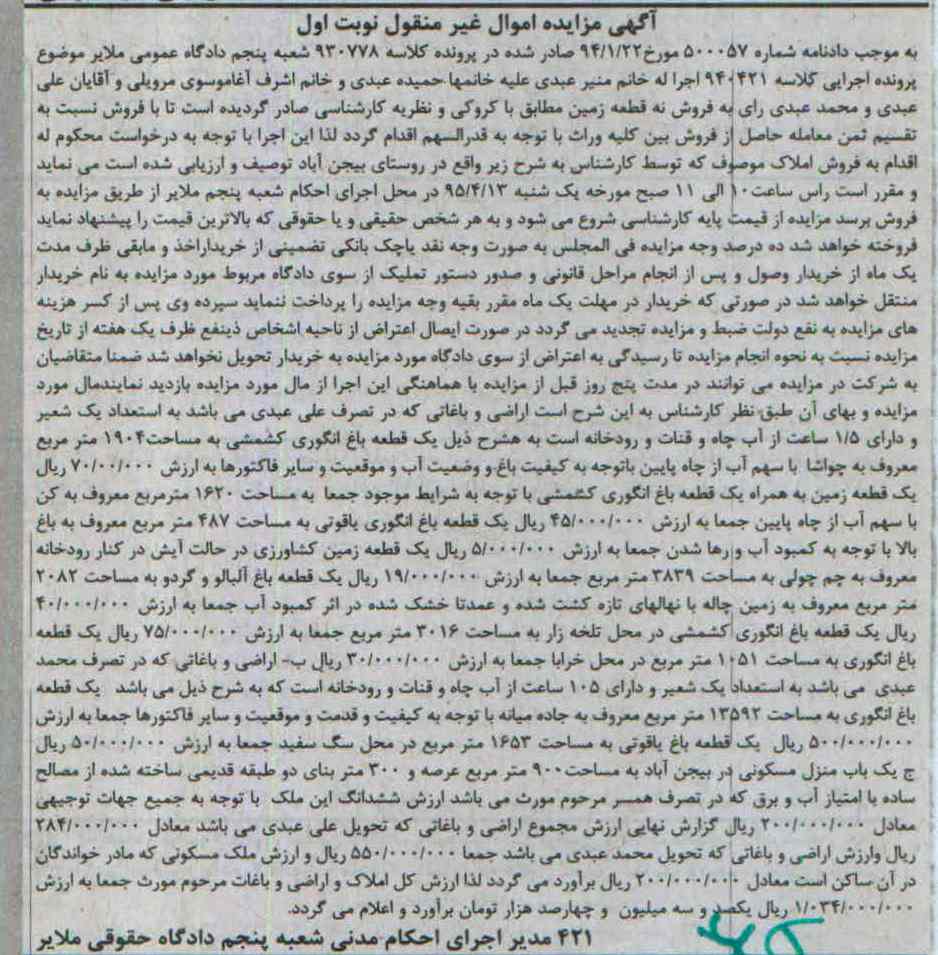 آگهی مزایده اموال غیر منقول نوبت اول
به موجب دادنامه شماره ۵۰۰۰۵۷ مورخ۹۴/۱/۲۲ صادر شده در پرونده کلاسه ۹۳۰۷۷۸ شعبه پنجم دادگاه عمومی ملایر موضوع
پرونده اجرایی کلاسه ۹۴۰۴۲۱ اجرا له خانم منیر عبدی علیه خانمها حمیده عبدی و خانم اشرف آغاموسوی مرویلی و آقایان علی
عبدی و محمد عبدی رای به فروش نه قطعه زمین مطابق با کروکی و نظریه کارشناسی صادر گردیده است تا با فروش نسبت به
تقسیم ثمن معامله حاصل از فروش بین کلیه وراث با توجه به قدرالسهم اقدام گردد لذا این اجرا با توجه به درخواست محکوم له
اقدام به فروش املاک موصوف که توسط کارشناس به شرح زیر واقع در روستای بیجن آباد توصیف و ارزیابی شده است می نماید
و مقرر است راس ساعت۱۰ الی ۱۱ صبح مورخه یک شنبه ۹۵/۴/۱۳ در محل اجرای احکام شعبه پنجم ملایر از طریق مزایده به
فروش برسد مزایده از قیمت پایه کارشناسی شروع می شود و به هر شخص حقیقی و یا حقوقی که بالاترین قیمت را پیشنهاد نماید
فروخته خواهد شد ده درصد وجه مزایده فی المجلس به صورت وجه نقد یاچک بانکی تضمینی از خریداراخذ و مابقی ظرف مدت
یک ماه از خریدار وصول و پس از انجام مراحل قانونی و صدور دستور تملیک از سوی دادگاه مربوط مورد مزایده به نام خریدار
منتقل خواهد شد در صورتی که خریدار در مهلت یک ماه مقرر بقیه وجه مزایده را پرداخت ننماید سپرده وی پس از کسر هزینه
های مزایده به نفع دولت ضبط و مزایده تجدید می گردد در صورت ایصال اعتراض از ناحیه اشخاص ذینفع ظرف یک هفته از تاریخ
مزایده نسبت به نحوه انجام مزایده تا رسیدگی به اعتراض از سوی دادگاه مورد مزایده به خریدار تحویل نخواهد شد ضمنا متقاضیان
به شرکت در مزایده می توانند در مدت پنج روز قبل از مزایده با هماهنگی این اجرا از مال مورد مزایده بازدید نمایندمال مورد
مزایده و بهای آن طبق نظر کارشناس به این شرح است اراضی و باغاتی که در تصرف علی عبدی می باشد به استعداد یک شعیر
و دارای ۱/۵ ساعت از آب چاه و قنات و رودخانه است به هشرح ذیل یک قطعه باغ انگوری کشمشی به مساحت۱۹۰۴ متر مربع
معروف به چواشا با سهم آب از چاه پایین باتوجه به کیفیت باغ و وضعیت آب و موقعیت و سایر فاکتورها به ارزش ۷۰/۰۰/۰۰۰ ریال
یک قطعه زمین به همراه یک قطعه باغ انگوری کشمشی با توجه به شرایط موجود جمعا به مساحت ۱۶۲۰ مترمربع معروف به کن
با سهم آب از چاه پایین جمعا به ارزش ۴۵/۰۰۰/۰۰۰ ریال یک قطعه باغ انگوری یاقوتی به مساحت ۴۸۷ متر مربع معروف به باغ
بالا با توجه به کمبود آب و رها شدن جمعا به ارزش ۵/۰۰۰/۰۰۰ ریال یک قطعه زمین کشاورزی در حالت آیش در کنار رودخانه
معروف به چم چولی به مساحت ۳۸۳۹ متر مربع جمعا به ارزش ۱۹/۰۰۰/۰۰۰ ریال یک قطعه باغ آلبالو و گردو به مساحت ۲۰۸۲
متر مربع معروف به زمین چاله با نهالهای تازه کشت شده و عمدتا خشک شده در اثر کمبود آب جمعا به ارزش ۴۰/۰۰۰/۰۰۰
ریال یک قطعه باغ انگوری کشمشی در محل تلخه زار به مساحت ۳۰۱۶ متر مربع جمعا به ارزش ۷۵/۰۰۰/۰۰۰ ریال یک قطعه
باغ انگوری به مساحت ۱۰۵۱ متر مربع در محل خرابا جمعا به ارزش ۳۰/۰۰۰/۰۰۰ ریال ب- اراضی و باغاتی که در تصرف محمد
عبدی می باشد به استعداد یک شعیر و دارای ۱۰۵ ساعت از آب چاه و قنات و رودخانه است که به شرح ذیل می باشد یک قطعه
باغ انگوری به مساحت ۱۳۵۹۲ متر مربع معروف به جاده میانه با توجه به کیفیت و قدمت و موقعیت و سایر فاکتورها جمعا به ارزش
۵۰۰/۰۰۰/۰۰۰ ریال یک قطعه باغ یاقوتی به مساحت ۱۶۵۳ متر مربع در محل سگ سفید جمعا به ارزش ۵۰/۰۰۰/۰۰۰ ریال
ج یک باب منزل مسکونی در بیجن آباد به مساحت۹۰۰ متر مربع عرصه و ۳۰۰ متر بنای دو طبقه قدیمی ساخته شده از مصالح
ساده با امتیاز آب و برق که در تصرف همسر مرحوم مورث می باشد ارزش ششدانگ این ملک با توجه به جمیع جهات توجیهی
معادل ۲۰۰/۰۰۰/۰۰۰ ریال گزارش نهایی ارزش مجموع اراضی و باغاتی که تحویل علی عبدی می باشد معادل ۲۸۴/۰۰۰/۰۰۰
ریال وارزش اراضی و باغاتی که تحویل محمد عبدی می باشد جمعا ۵۵۰/۰۰۰/۰۰۰ ریال و ارزش ملک مسکونی که مادر خواندگان
در آن ساکن است معادل ۲۰۰/۰۰۰/۰۰۰ ریال برآورد می گردد لذا ارزش کل املاک و اراضی و باغات مرحوم مورث جمعا به ارزش
۱/۰۳۴/۰۰۰/۰۰۰ ریال یکصد و سه میلیون و چهارصد هزار تومان برآورد و اعلام می گردد.
۴۲۱ مدیر اجرای احکام مدنی شعبه پنجم دادگاه حقوقی ملایر